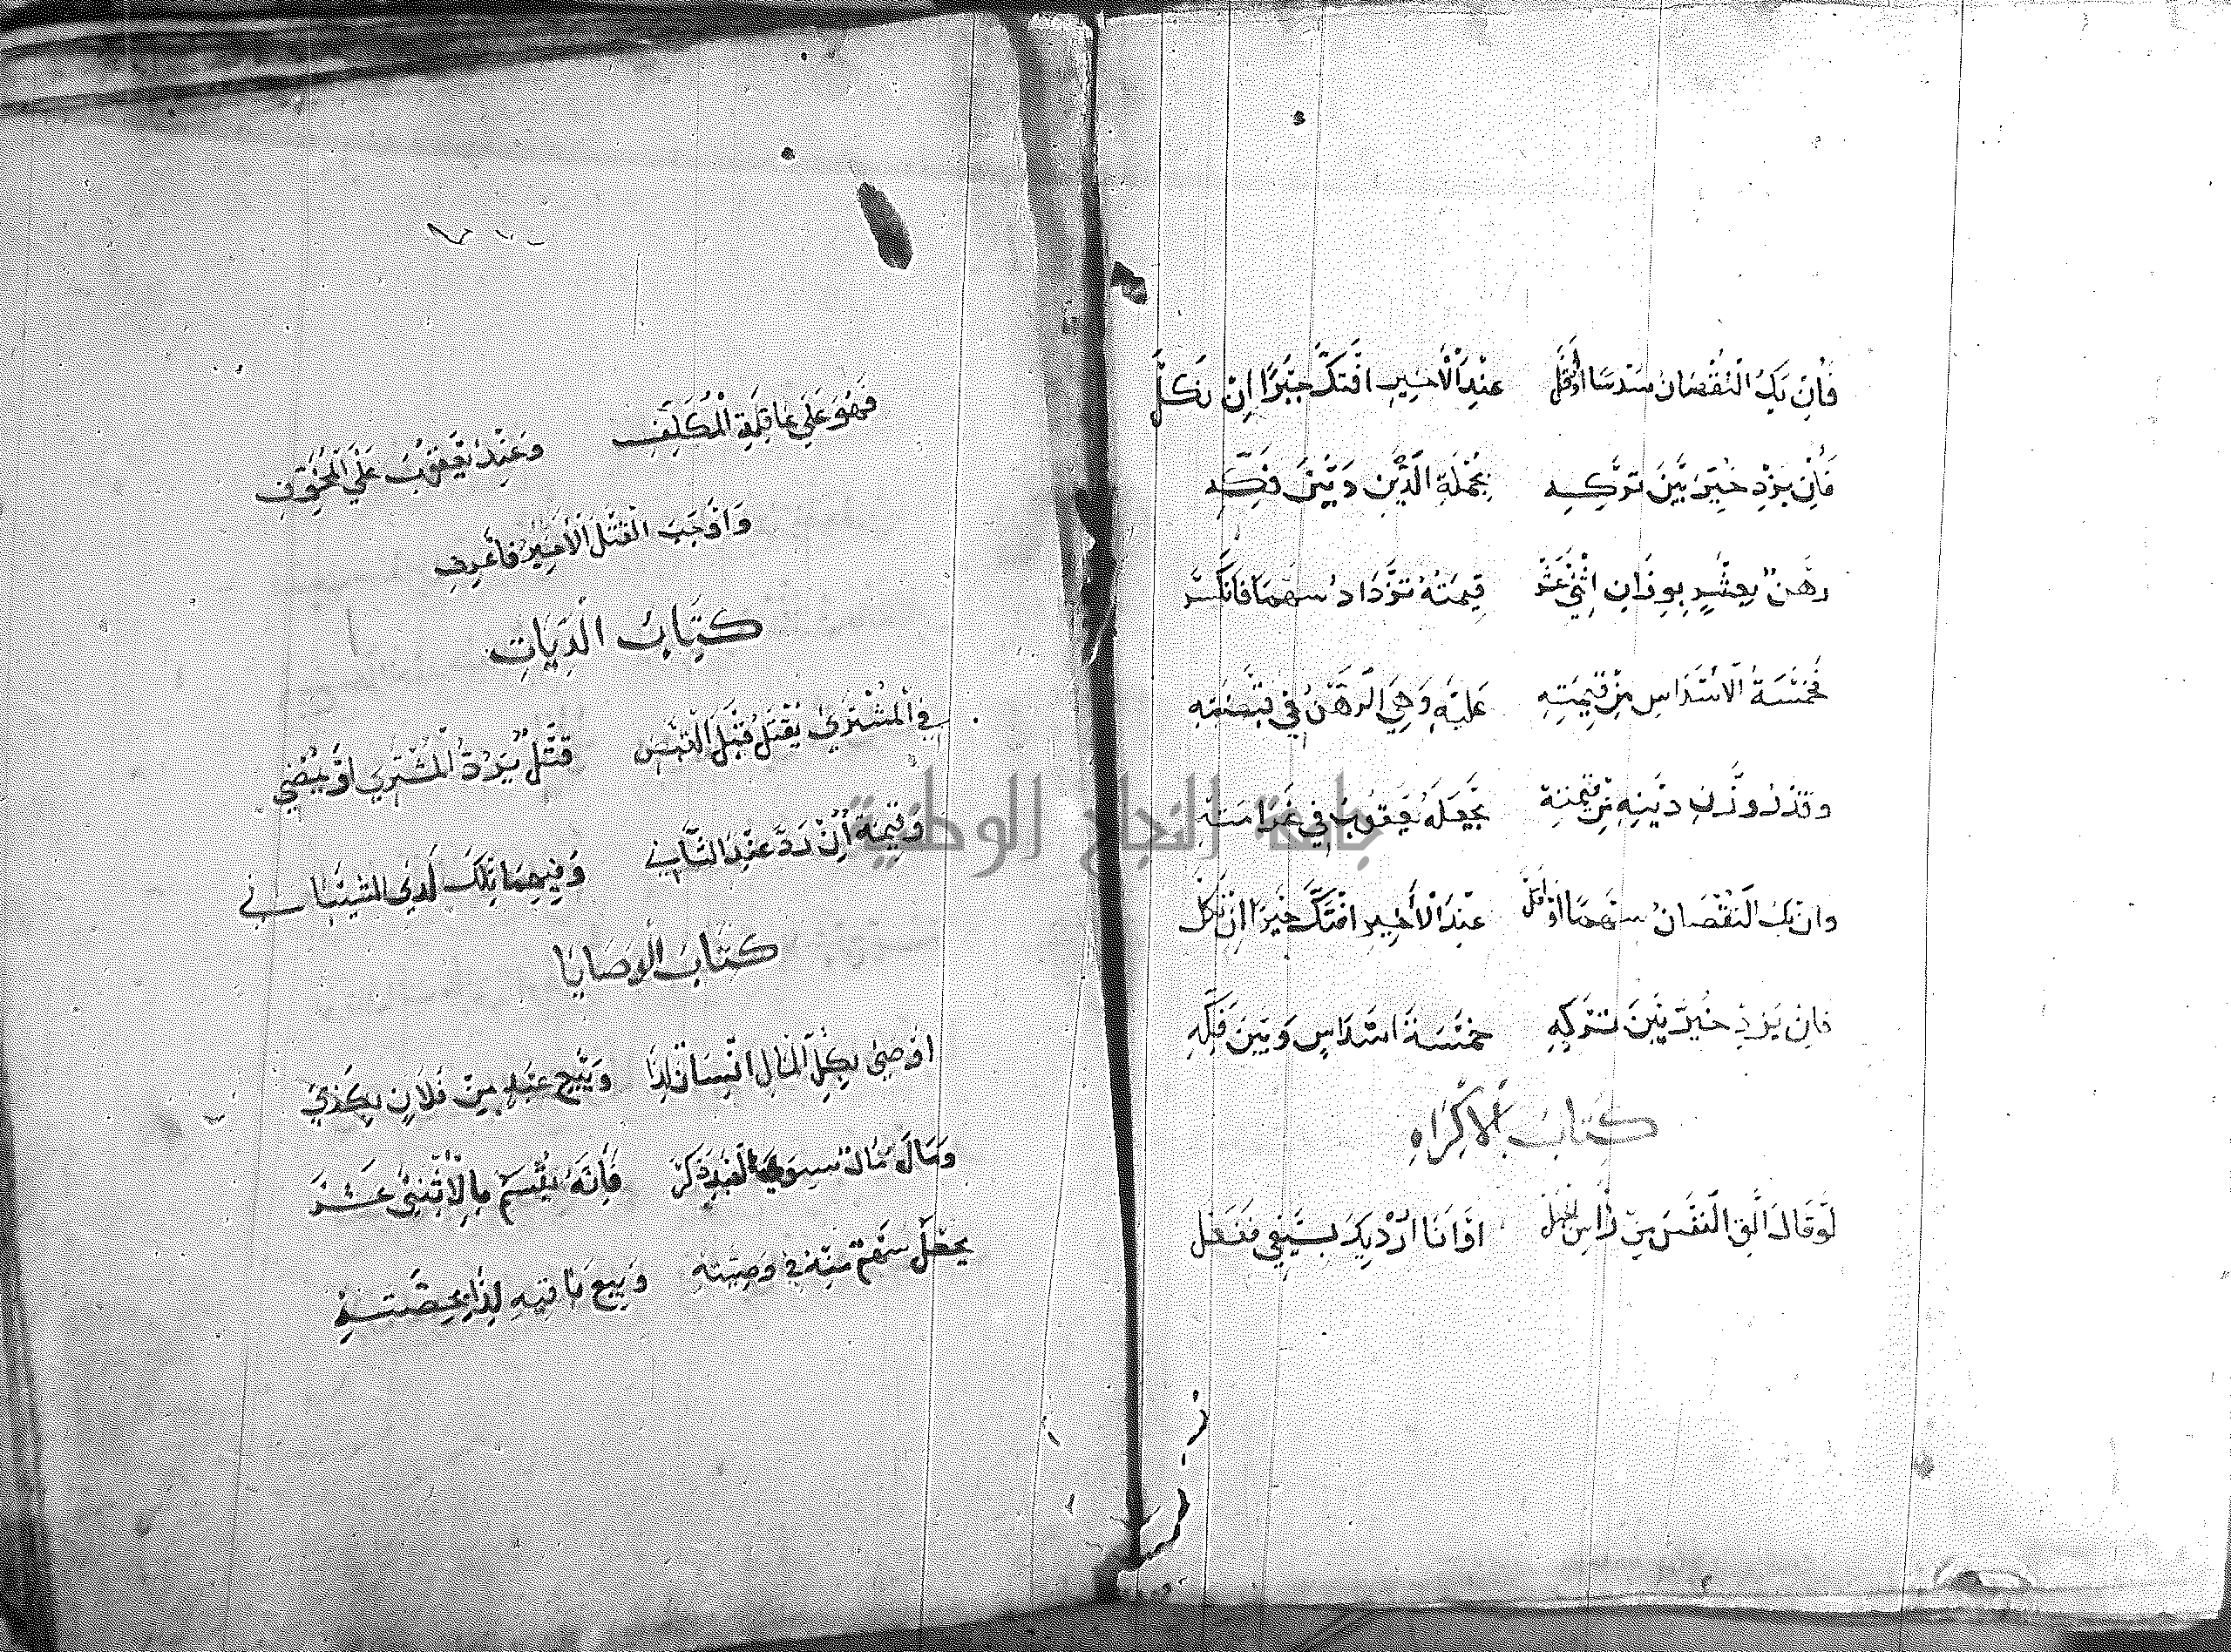 فَإِنْ يَكُ النُّقْصَانُ سُدْسًا أَوْ أَقَلّ عِنْدَ الْأَخِيرِ افْتَكَّ جَبْرًا إِنْ نَكَلّ
فَإِنْ يَزِدْ خُيِّرَ بَيْنَ تَرْكِهِ بِجُمْلَةِ الدَّيْنِ وَبَيْنَ فَكِّهِ
رَهْنٌ بِعَشْرٍ بِوِزَانِ اثْنَيْ عَشَر قِيمَتُهُ تَزْدَادُ سَهْمًا فَانْكَسَر
فَخَمْسَةُ الْأَسْدَاسِ مِنْ قِيمَتِهِ عَلَيْهِ وَهِيَ الرَّهْنُ فِي قَبْضَتِهِ
وَقَدْرُ وَزْنِ دَيْنِهِ مِنْ قِيمَتِهِ يَجْعَلُهُ يَعْقُوبُ فِي غَرَامَتِهِ
وَإِنْ يَكُ النُّقْصَانُ سَهْمًا أَوْ أَقَلّ عِنْدَ الْأَخِيرِ افْتَكَّ جَبْرًا إِنْ نَكَلْ
فَإِنْ يَزِدْ خُيِّرَ بَيْنَ تَرْكِهِ خَمْسَةَ أَسْدَاسٍ وَبَيْنَ فَكِّهِ
كِتَابُ الْإِكْرَاهِ
لَوْ قَالَ أَلْقِ النَّفْسَ مِنْ رَأْسِ الْجَبَل أَوْ أَنَا أُرْدِيكَ بِسَيْفِي فَفَعَل
فَهُوَ عَلَى عَاقِلَةِ الْمُكَلِّفِ وَعِنْدَ يَعْقُوبَ عَلَى الْمُخَوِّفِ
وَأَوْجَبَ الْقَتْلَ الْأَخِيرُ فَاعْرِفِ
كِتَابُ الدِّيَاتِ
فِي الْمُشْتَرَى يُقْتَلُ قَبْلَ الْقَبْضِ قَتْلٌ يَرُدُّ الْمُشْتَرِي أَوْ يَمْضِي
وَقِيمَةٌ إِنْ رَدَّ عِنْدَ الثَّانِي وَفِيهِمَا تِلْكَ لَدَى الشَّيْبَانِي
كِتَابُ الْوَصَايَا
أَوْصَى بِكُلِّ الْمَالِ إِنْسَانٌ لِذَا وَبَيْعِ عَبْدٍ مِنْ فُلَانٍ بِكَذَى
وَمَا لَهُ مَالٌ سِوَى الْعَبْدِ ذُكِرْ فَإِنَّهُ يُقْسَمُ بِالْاثْنَيْ عَشَرَ
يُجْعَلُ سَهْمٌ مِنْهُ فِي وَصِيَّتِهِ وَبِيعَ بَاقِيهِ لِذَا بِحِصَّتِهِ
جامعة النجاح الوطنية